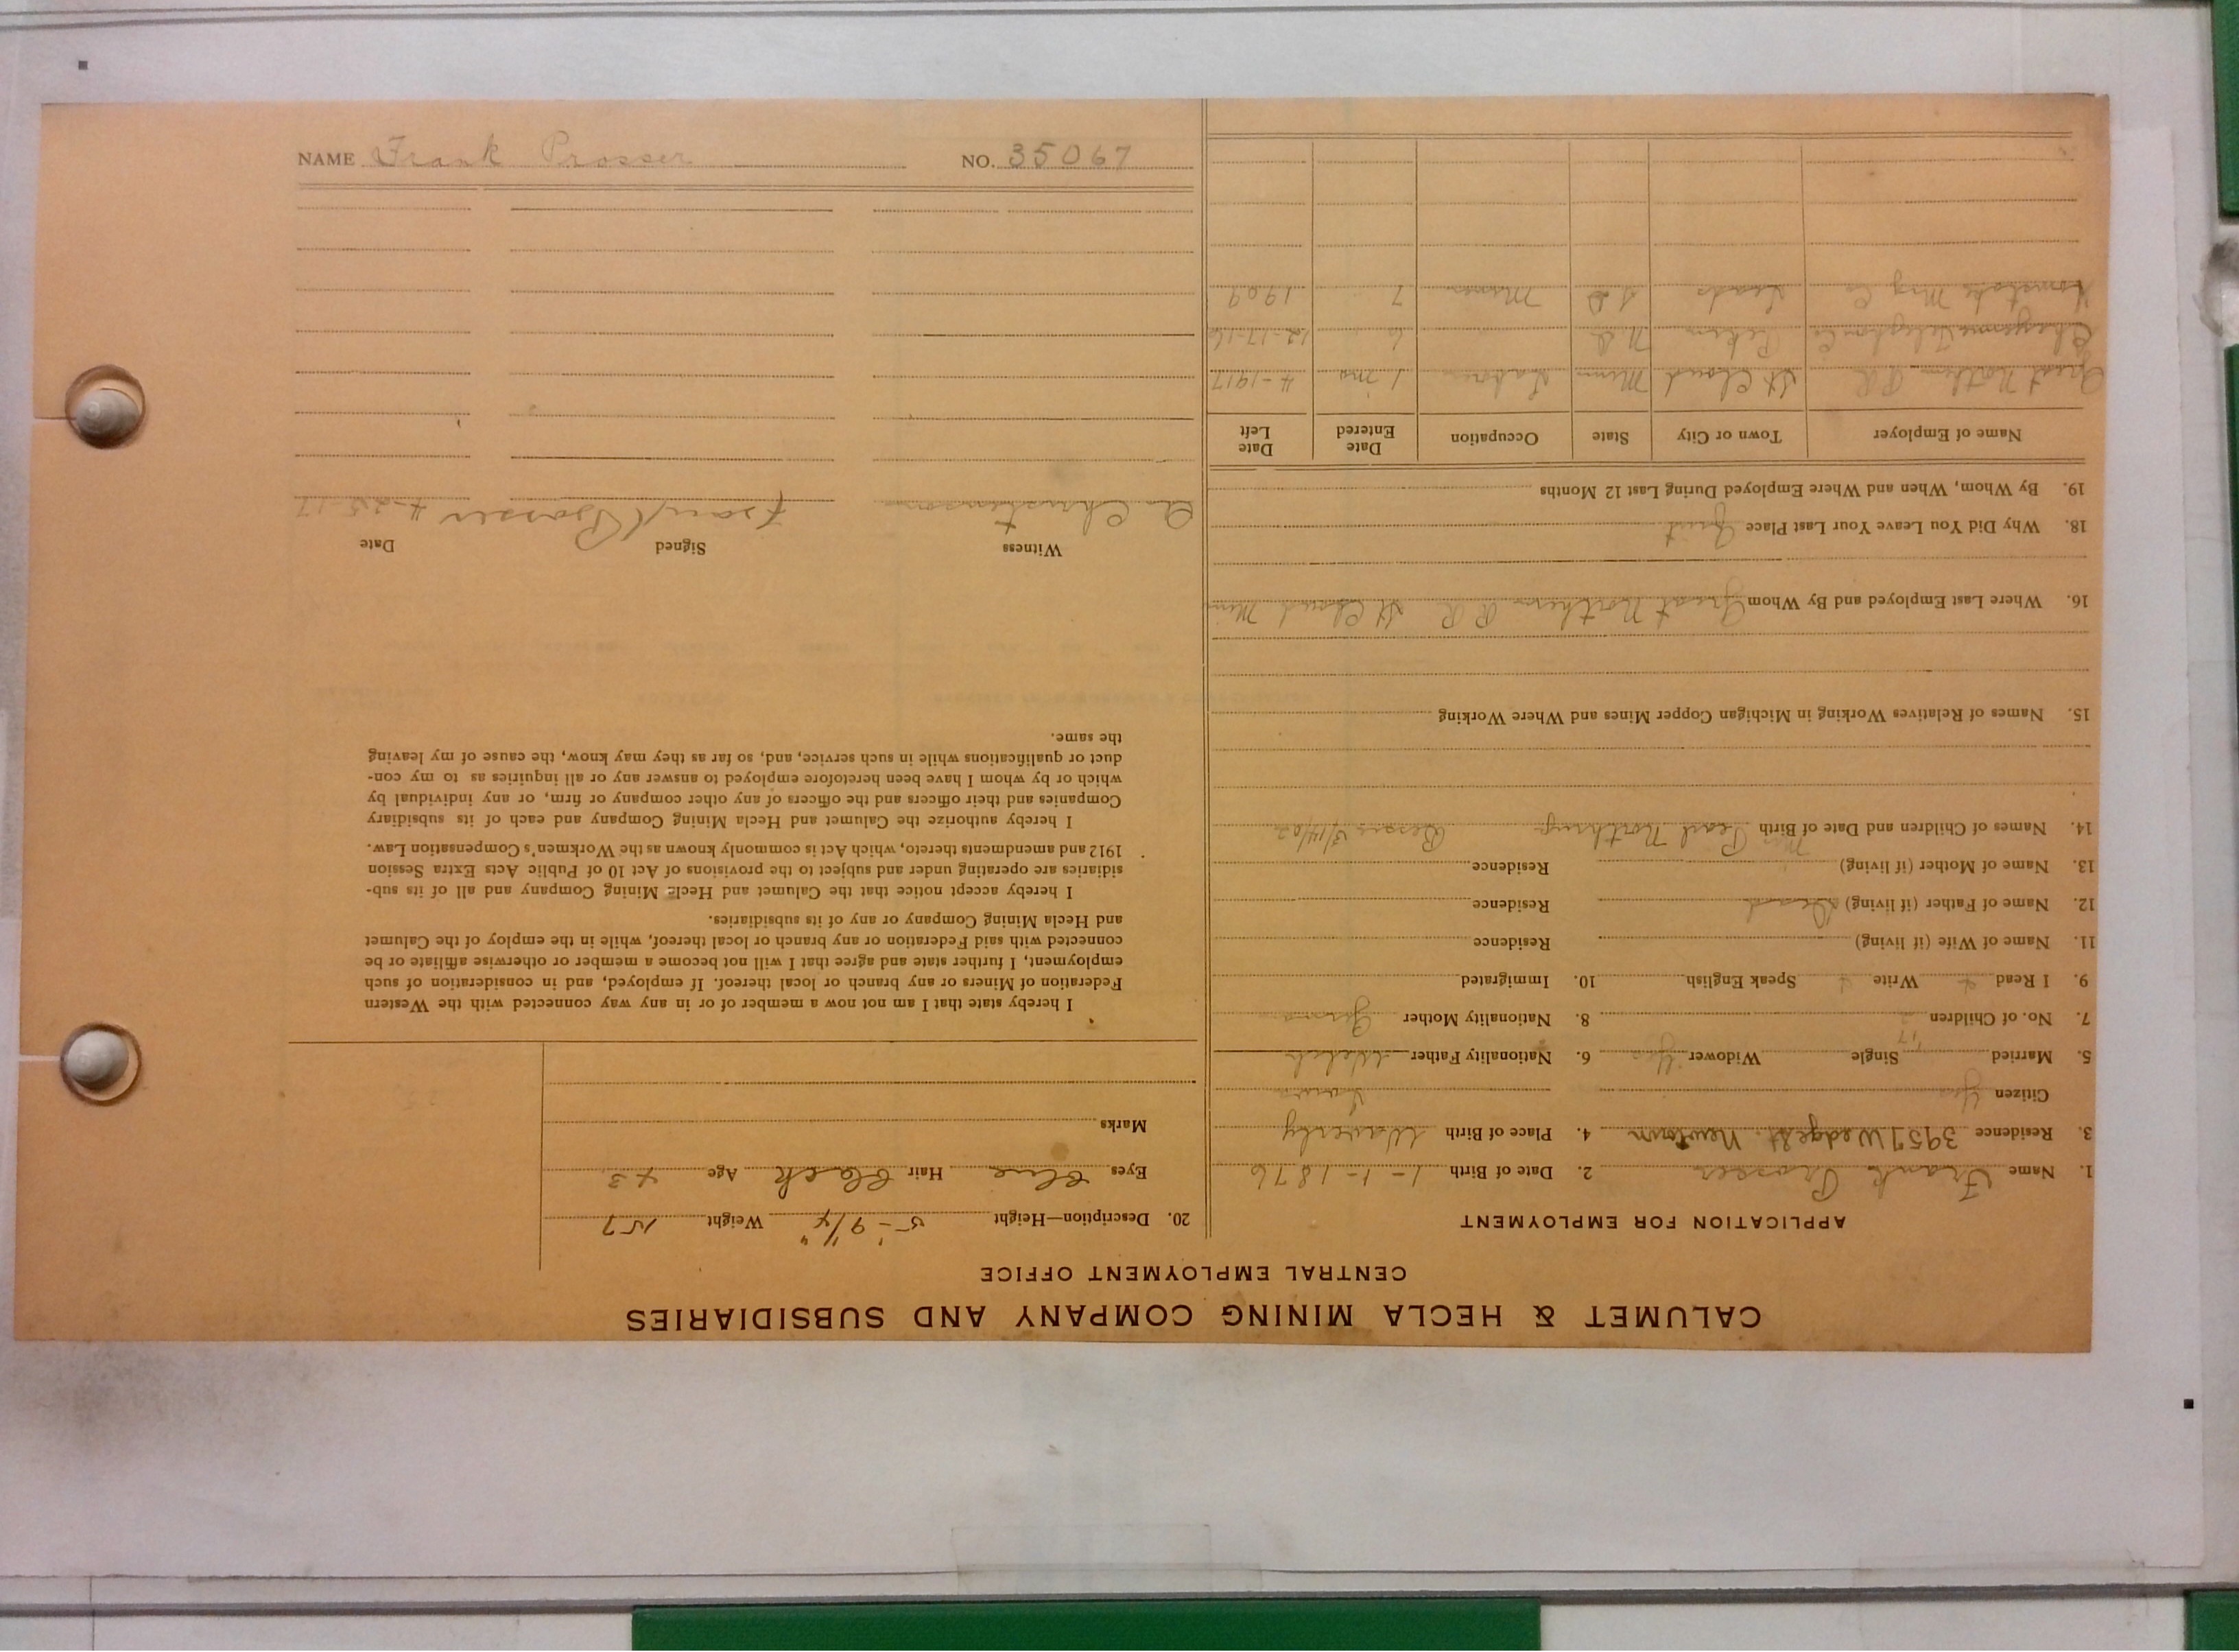 NAME Frank Prosser NO. 35067
CALUMET & HECLA MINING COMPANY AND SUBSIDIARIES
CENTRAL EMPLOYMENT OFFICE
APPLICATION FOR EMPLOYMENT
1. Name Frank Prosser 2. Date of Birth 1-1-1876
3. Residence 3957 Wedge St. Newtown 4. Place of Birth Waverly
Citizen Yes Iowa
5. Married Single Widower Yes 6. Nationality Father Welsh
7. No. of Children 8. Nationality Mother
9. I Read Write Speak English 10. Immigrated
11. Name of Wife (if living) Residence
12. Name of Father (if living) Dead Residence
13. Name of Mother (if living) Residence
14. Names of Children and Date of Birth Pearl Northrup Bessie 5/14/02
Mrs
15. Names of Relatives Working in Michigan Copper Mines and Where Working
16. Where Last Employed and By Whom Great Northern R R St Cloud Minn
18. Why Did You Leave Your Last Place Quit
19. By Whom, When and Where Employed During Last 12 Months
Name of Employer Town or City State Occupation Date Entered Date Left
Great Northern RR St Cloud Minn Labor 1 mo 4-1917
Cheyenne Telephone Co Pekin N.D. 6 12-17-16
Homestake Mng Co Leads S D Miner 7 1909
20. Description—Height 5'-9 1/4" Weight 157
Eyes Blue Hair Black Age 43
Marks
I hereby state that I am not now a member of or in any way connected with the Western
Federation of Miners or any branch or local thereof. If employed, and in consideration of such
employment, I further state and agree that I will not become a member or otherwise affiliate or be
connected with said Federation or any branch or local thereof, while in the employ of the Calumet
and Hecla Mining Company or any of its subsidiaries.
I hereby accept notice that the Calumet and Hecla Mining Company and all of its sub-
sidiaries are operating under and subject to the provisions of Act 10 of Public Acts Extra Session
1912 and amendments thereto, which Act is commonly known as the Workmen's Compensation Law.
I hereby authorize the Calumet and Hecla Mining Company and each of its subsidiary
Companies and their officers and the officers of any other company or firm, or any individual by
which or by whom I have been heretofore employed to answer any or all inquiries as to my con-
duct or qualifications while in such service, and, so far as they may know, the cause of my leaving
the same.
Witness Signed Date
A Christenson Frank Prosser 4-25-17